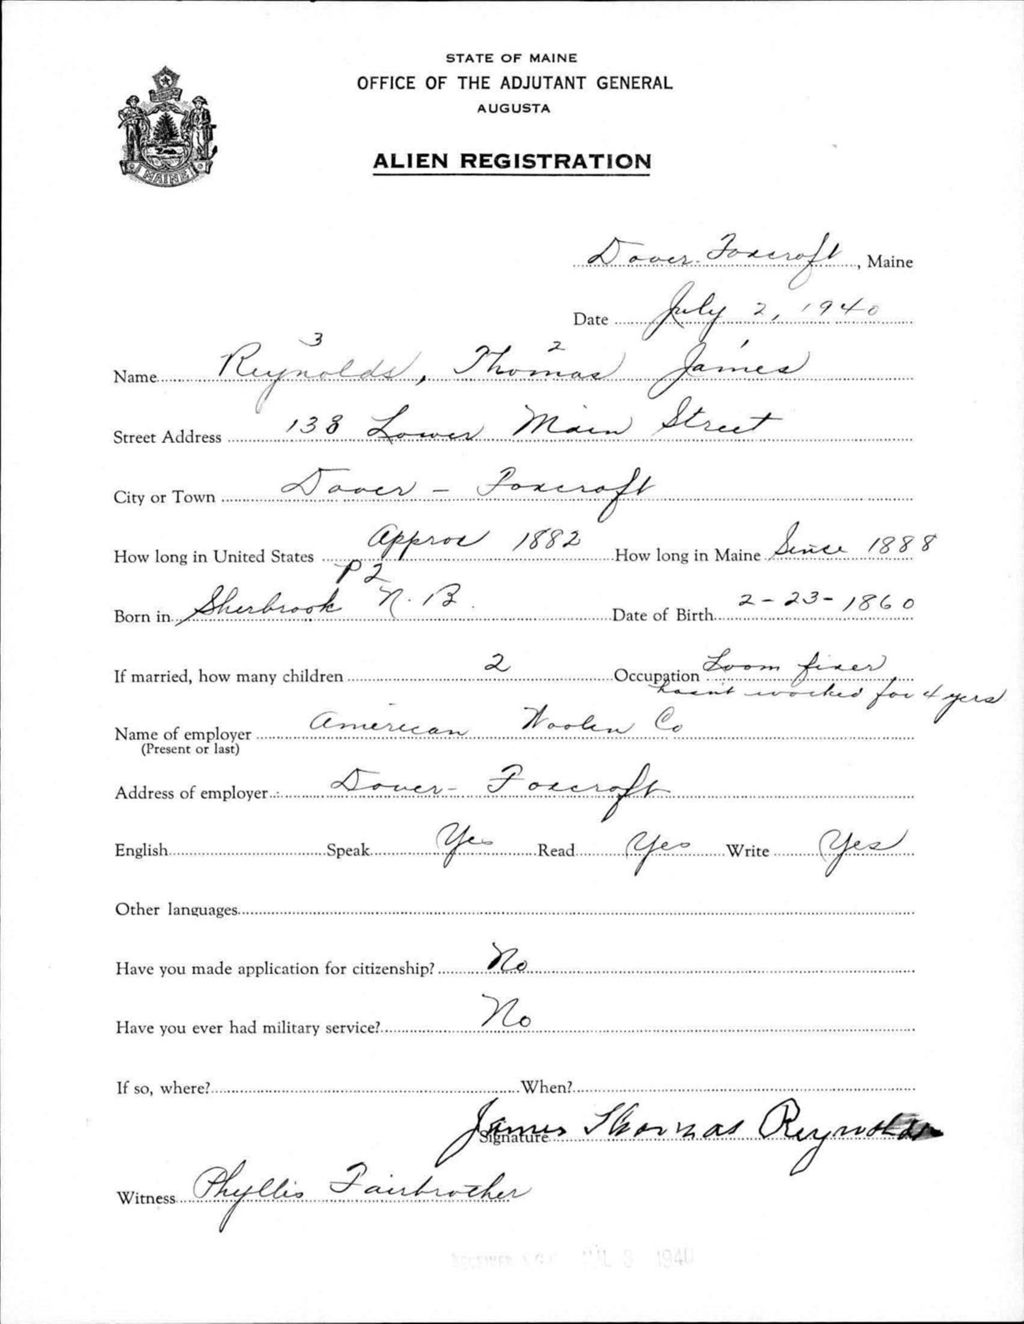 STATE OF MAINE
OFFICE OF THE ADJUTANT GENERAL
AUGUSTA
ALIEN REGISTRATION
MAINE
Dover-Foxcroft, Maine
Date July 2, 1940
3 2 1
Name Reynolds, Thomas James
Street Address 138 Lower Main Street
City or Town Dover - Foxcroft
How long in United States Approx 1882 How long in Maine Since 1888
P2
Born in Sherbrook N.B. Date of Birth 2-23-1860
If married, how many children 2 Occupation Loom fixer
hasn't worked for 4 yers
Name of employer American Woolen Co
(Present or last)
Address of employer Dover-Foxcroft
English Speak Yes Read Yes Write Yes
Other languages
Have you made application for citizenship? No
Have you ever had military service? No
If so, where? When?
Signature James Thomas Reynolds
Witness Phyllis Fairbrother
JUL 3 1940